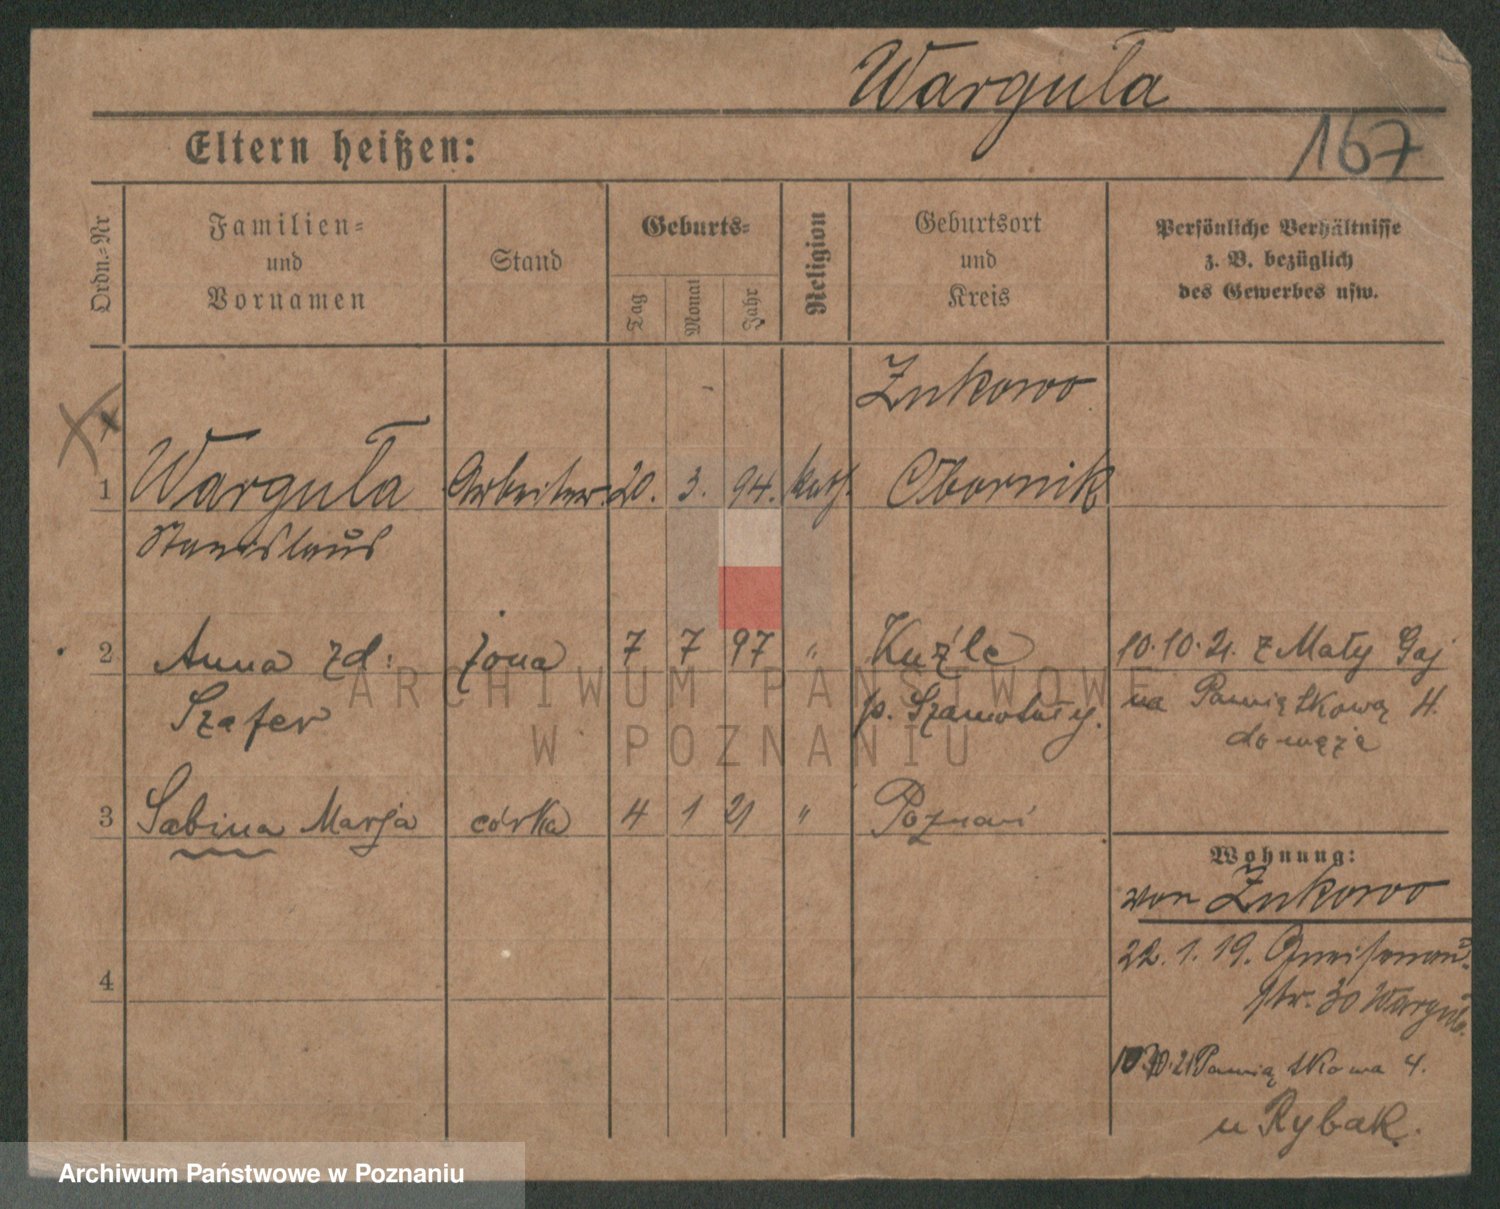 Warguła
Eltern heißen:
167
Ordn.-Nr
Familien-
und
Vornamen
Stand
Geburts-
Tag
Monat
Jahr
Religion
Geburtsort
und
Kreis
Persönliche Verhältnisse
z. B. bezüglich
des Gewerbes usw.
Zukowo
1 Warguła Arbeiter 20. 3. 94. kath. Obornik
Stanislaus
2 Anna zd: żona 7 7 97 " Kuźle 10.10.21. z Mały Gaj
Szafer p. Szamotuły. na Pamiątkową 4.
do męża
3 Sabina Marja córka 4 1 21 " Poznań
Wohnung:
von Zukowo
22.1.19. Gneisenau-
str. 30 Warguła.
4
10.10.21 Pamiątkowa 4.
u Rybak.
ARCHIWUM PAŃSTWOWE
W POZNANIU
Archiwum Państwowe w Poznaniu